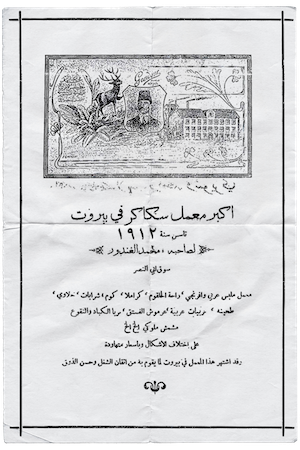 اكبر معمل سكاكر في بيروت
تأسس سنة ١٩١٢
لصاحبه محمد الغندور
سوق ابي النصر
معمل ملبس عربي وافرنجي راحة الحلقوم كراملا كوم شرابات حلاوي
طحينه عربيات غريبة مربا الكباد والنقوع
مشمش ملوكي الخ الخ
على اختلاف الاشكال وباسعار متهاودة
وقد اشتهر هذا المعمل في بيروت لما يقوم به من اتقان الشغل وحسن الذوق